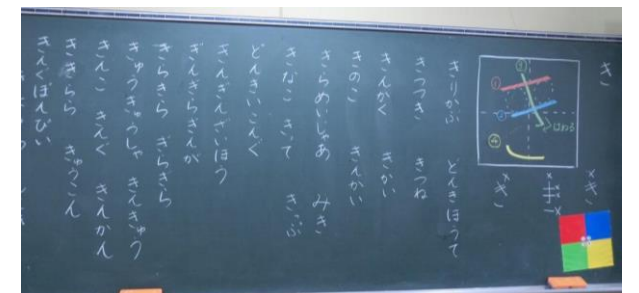 き
① ② ③ ④ はねる
×き ×キ ×き
きりかぶ どんきほうて
きつつき きつね
きんかく きかい
きのこ きんかい
きらめいじゃあ みき
きなこ きって きっぷ
どんきいこんぐ
きんぎんざいほう
ぎんぎらぎんが
きらきら ぎらぎら
きゅうきゅうしゃ きんきゅう
きんこ きんぐ きんかん
ききらら きゅうこん
きんぐぼんびい